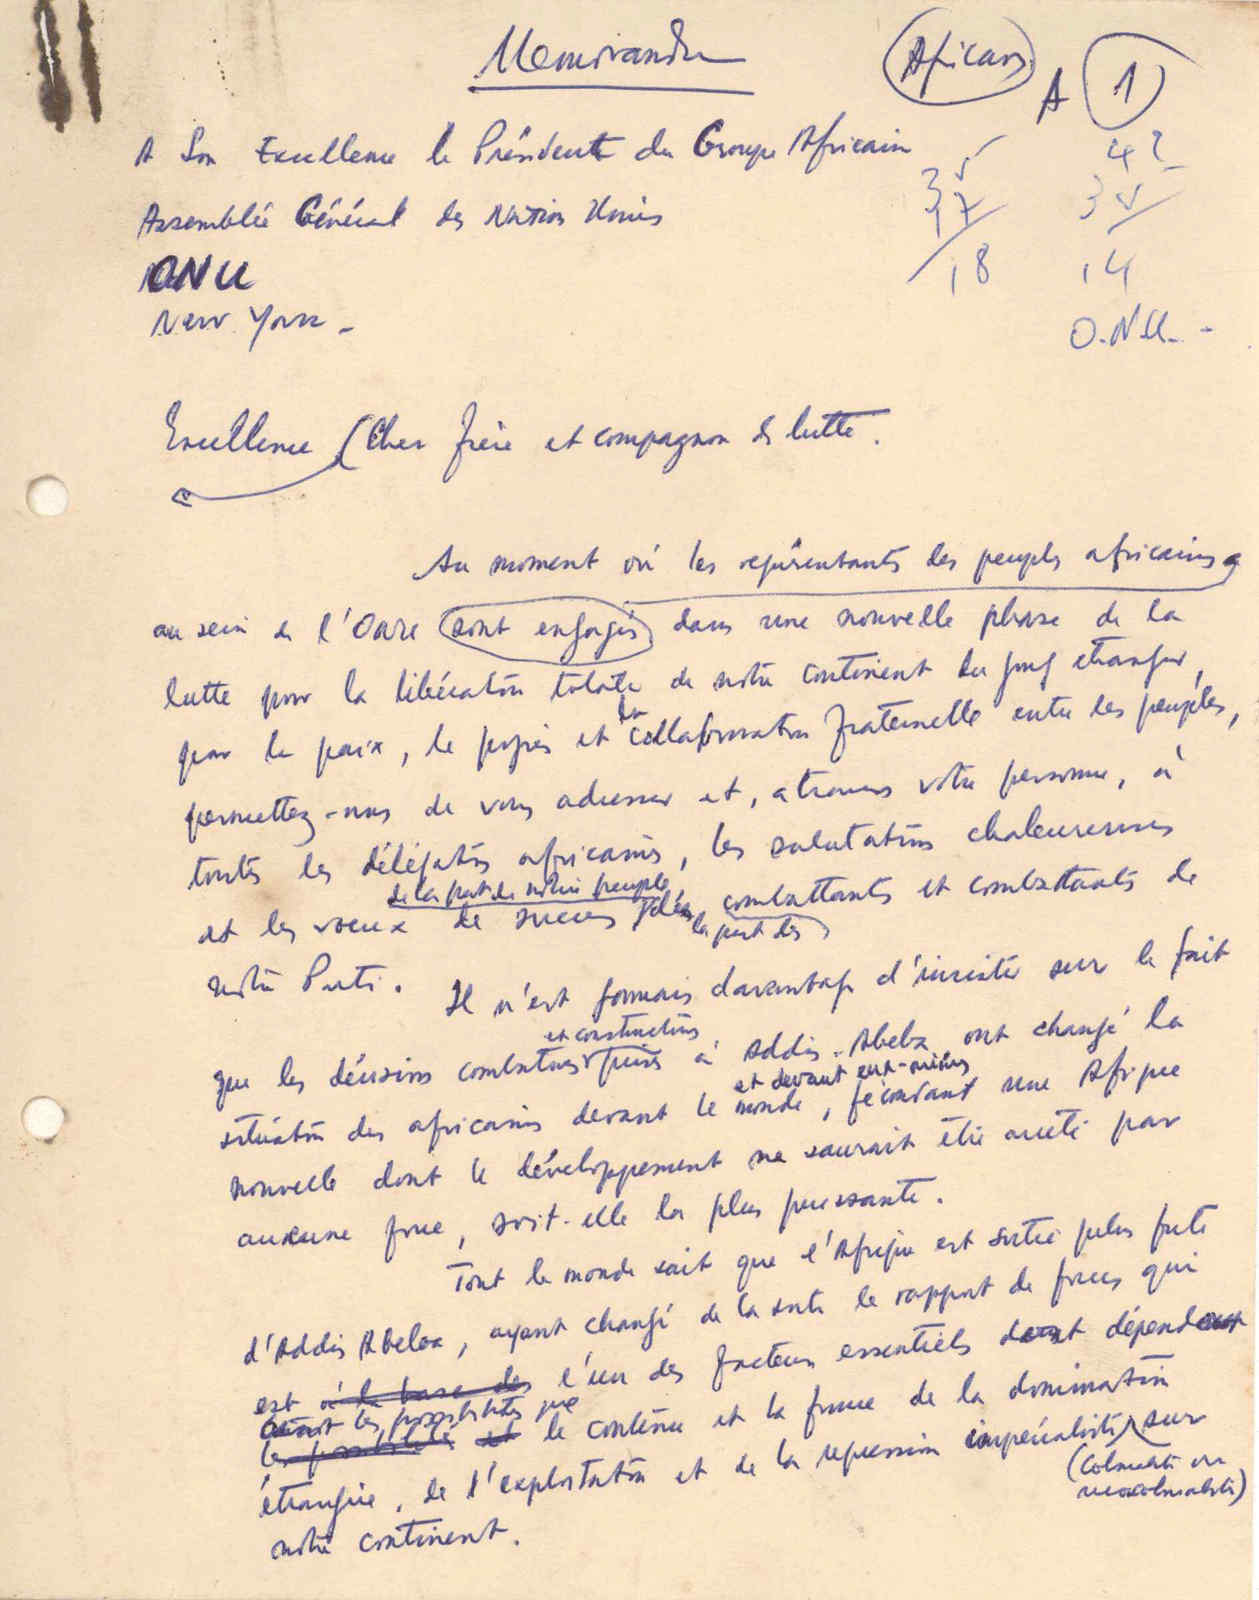 Memorandum
Africains
A 1
A Son Excellence le Président du Groupe Africain
35
17
18
42
35
14
Assemblée Général des Nations Unies
ONU
New York -
O.N.U. -
Excellence (Cher frère et compagnon de lutte.
Au moment où les représentants des peuples africains,
au sein de l'Onu sont engagés dans une nouvelle phase de la
lutte pour la libération totale de notre continent du joug étranger,
pour la paix, le progrès et la collaboration fraternelle entre les peuples,
permettez-nous de vous adresser et, a travers votre personne, à
toutes les délégations africaines, les salutations chaleureuses
de la part de notre peuple
et les voeux de succès des combattants et combattants de
la part des
notre Parti. Il n'est jamais davantage d'insister sur le fait
et constructives
que les décisions combatives prises à Addis-Abeba ont changé la
et devant eux-mêmes
situation des africains devant le monde, fécondant une Afrique
nouvelle dont le développement ne saurait être arrêté par
aucune force, soit-elle la plus puissante.
Tout le monde sait que l'Afrique est sortie plus forte
d'Addis Abeba, ayant changé de la sorte le rapport de forces qui
est à la base des l'un des facteurs essentiels dont dépend
les possibilités que
le contenu et la forme de la domination
étrangère, de l'exploitation et de la repression impérialiste sur
(colonialiste ou
neocolonialiste)
notre continent.